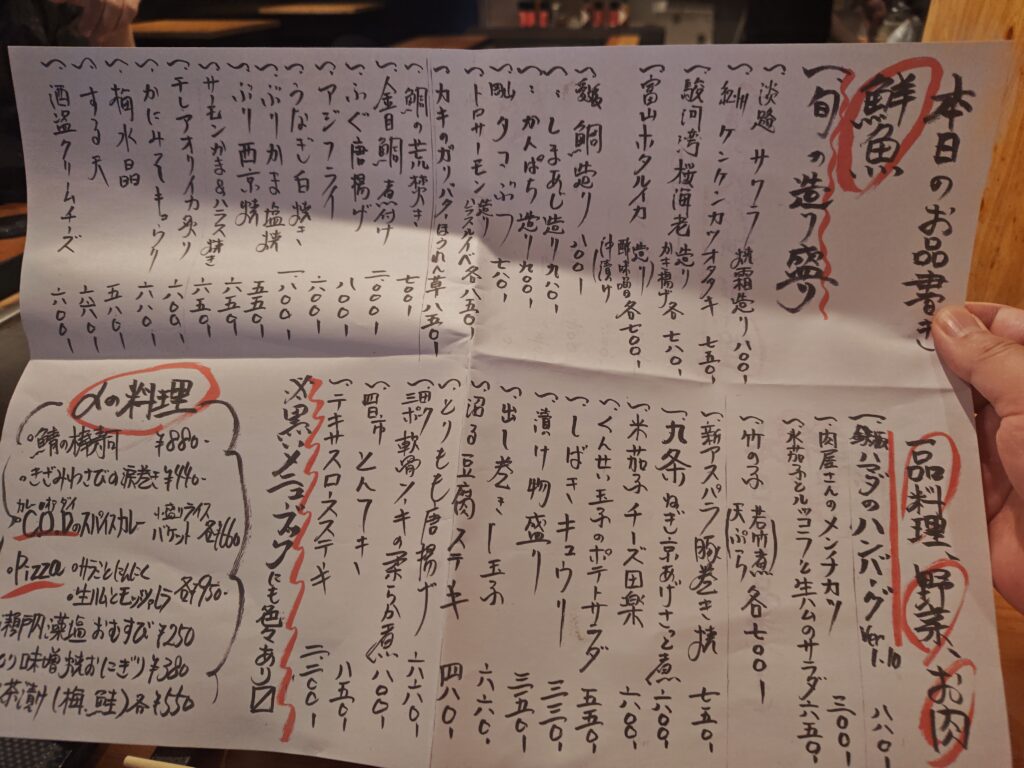 本日のお品書き
鮮魚
一、旬の造り盛り
一、淡路 サワラ 焼霜造り 八〇〇-
一、〃 ケンケンカツオタタキ 七五〇-
一、駿河湾 桜海老 造り かき揚げ 各七八〇-
一、富山ホタルイカ (造り 酢味噌 沖漬け) 各七〇〇-
一、鯛造り 八〇〇-
一、〃 しまあじ造り 九八〇-
一、〃 かんぱち造り 九〇〇-
一、タコぶつ 七六〇-
一、トロサーモン 造り ハラスルイベ 各八五〇-
一、カキのガリバタ・ほうれん草 八五〇-
一、鯛の荒焚き 七〇〇-
一、金目鯛 煮付け 二、〇〇〇-
一、ふぐ唐揚げ 一、〇〇〇-
一、アジフライ 八〇〇-
一、うなぎ白焼き 一、八〇〇-
一、ぶりかま塩焼 五五〇-
一、ぶり西京焼 五五〇-
一、サーモンかま&ハラス焼き 六五〇-
一、干しアオリイカ炙り 一、六〇〇-
一、かにみそキュウリ 六六〇-
一、梅水晶 五五〇-
一、するめ天 六六〇-
一、酒盗クリームチーズ 六〇〇-
一品料理、野菜、お肉
ハマダのハンバーグ Ver 1.10 八八〇-
一、肉屋さんのメンチカツ 三〇〇-
一、水茄子とルッコラと生ハムのサラダ 六五〇-
一、竹の子 (若竹煮 天ぷら) 各七〇〇-
一、新アスパラ豚巻き焼 七五〇-
一、九条ねぎと京あげさっと煮 六〇〇-
一、米茄子チーズ田楽 六〇〇-
一、くんせい玉子のポテトサラダ 五五〇-
一、しばきキュウリ 三三〇-
一、漬け物盛り 三五〇-
一、出し巻き玉子 六六〇-
一、沼る豆腐ステーキ 四八〇-
一、とりもも唐揚げ 六六〇-
一、軟骨の柔らか煮 八〇〇-
一、四日市とんテキ 一、〇〇〇-
一、テキサスロングステーキ 二、二〇〇-
※黒いメニューブックにも色々あり〼
〆の料理
・鯖の棒寿司 ¥880-
・きざみわさびの涙巻 ¥440-
・C.O.D.のスパイスカレー 小盛りライス バケット 各¥660
・Pizza
・生ハムとモッツァレラ 各¥950-
瀬戸内藻塩おむすび ¥250
味噌焼おにぎり ¥380
茶漬け(梅、鮭)各¥550